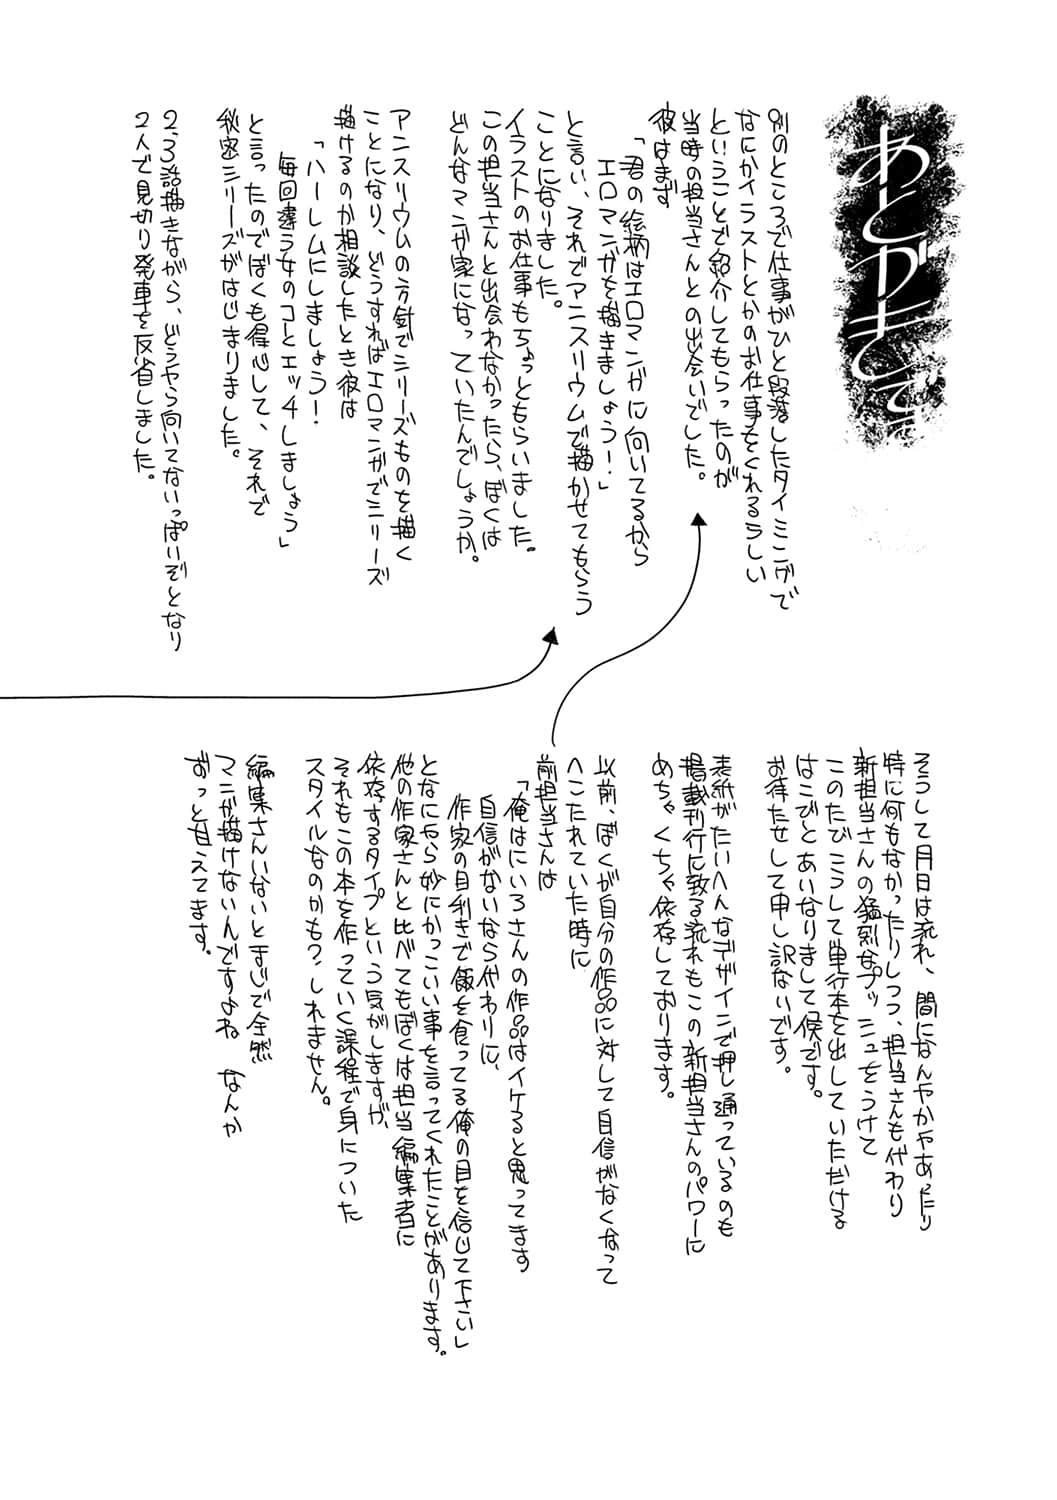 あとがきです
別のところで仕事がひと段落したタイミングで
なにかイラストとかのお仕事をくれるらしい
ということで紹介してもらったのが
当時の担当さんとの出会いでした。
彼はまず
「君の絵柄はエロマンガに向いてるから
エロマンガを描きましょう!」
と言い、それでアンスリウムで描かせてもらう
ことになりました。
イラストのお仕事もちょっともらいました。
この担当さんと出会わなかったら、ぼくは
どんなマンガ家になっていたんでしょうか。
アンスリウムの方針でシリーズものを描く
ことになり、どうすればエロマンガでシリーズ
描けるのか相談したとき彼は
「ハーレムにしましょう!
毎回違う女のコとエッチしましょう」
と言ったのでぼくも得心して、それで
秋家シリーズがはじまりました。
2、3話描きながら、どうやら向いてないっぽいぞとなり
2人で見切り発車を反省しました。
そうして月日は流れ、間になんやかやあったり
特に何もなかったりしつつ、担当さんも代わり
新担当さんの猛烈なプッシュをうけて
このたびこうして単行本を出していただける
はこびとあいなりまして候です。
お待たせして申し訳ないです。
表紙がたいへんなデザインで押し通っているのも
掲載刊行に致る流れもこの新担当さんのパワーに
めちゃくちゃ依存しております。
以前、ぼくが自分の作品に対して自信がなくなって
へこたれていた時に
前担当さんは
「俺はにいろさんの作品はイケると思ってます
自信がないなら代わりに、
作家の目利きで飯を食ってる俺の目を信じて下さい」
となにやら妙にかっこいい事を言ってくれたことがあります。
他の作家さんと比べてもぼくは担当編集者に
依存するタイプという気がしますが、
それもこの本を作っていく課程で身についた
スタイルなのかも?しれません。
編集さんいないとマジで全然
マンガ描けないんですよね なんか
ずっと甘えてます。